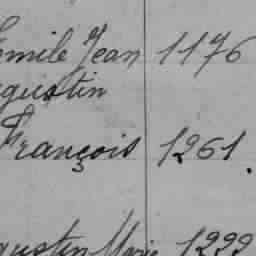 Emile Jean 1176
gustin
François 1261.
gustin Marie 1222